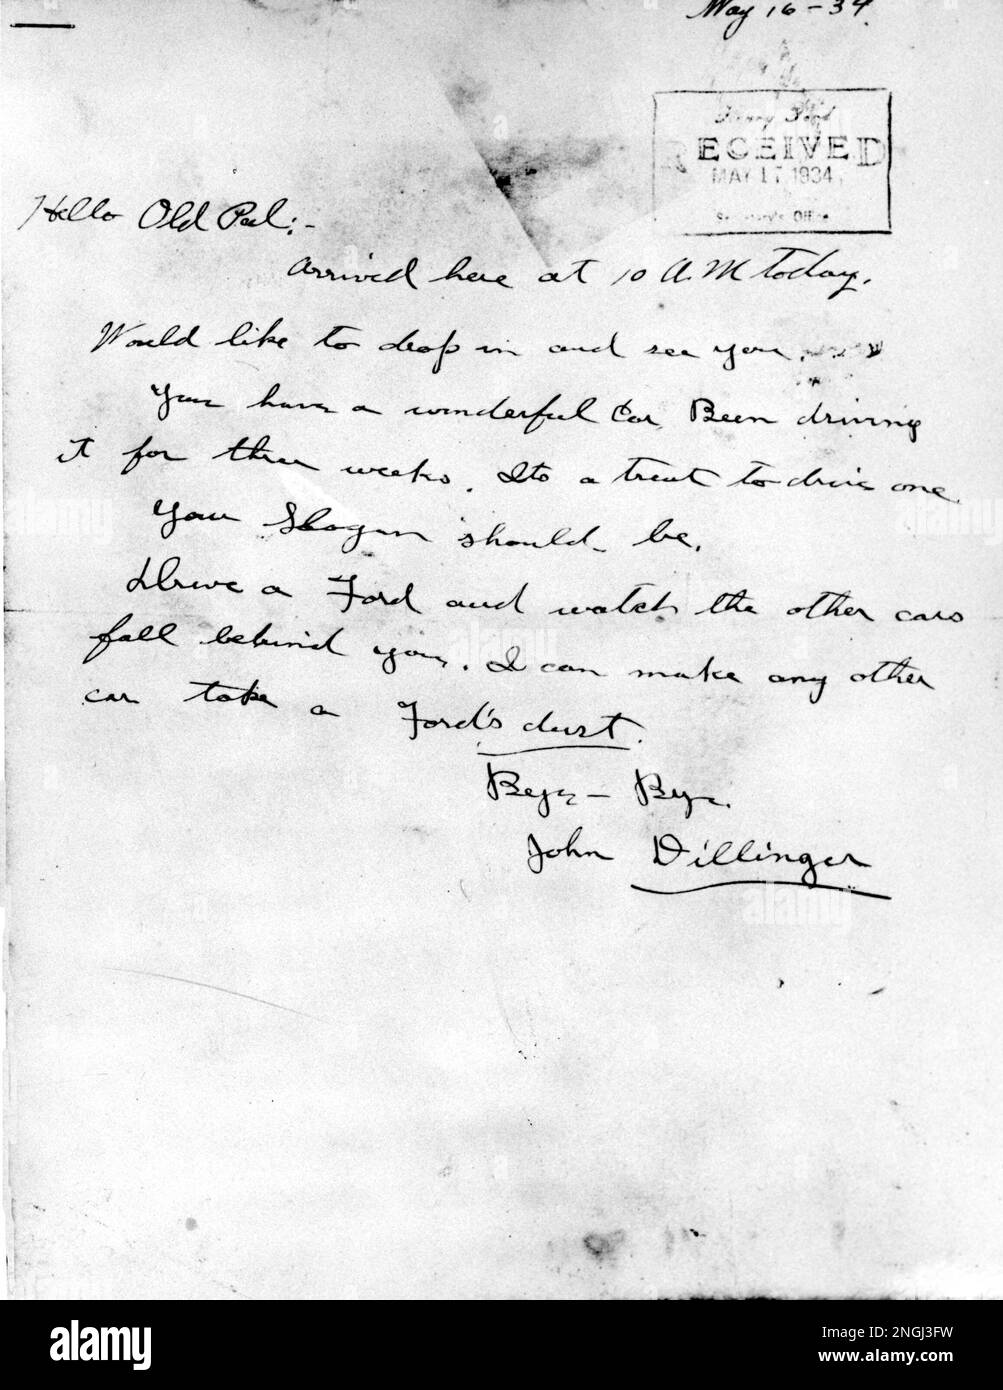 May 16-34
Henry Ford
RECEIVED
MAY 17 1934
Secretary's Office
Hello Old Pal:-
Arrived here at 10 A.M today.
Would like to drop in and see you.
You have a wonderful Car. Been driving
it for three weeks. Its a treat to drive one.
Your Slogan should be.
Drive a Ford and watch the other cars
fall behind you. I can make any other
car take a Ford's dust.
Bye- Bye.
John Dillinger
alamy
Image ID: 2NGJ3FW
www.alamy.com